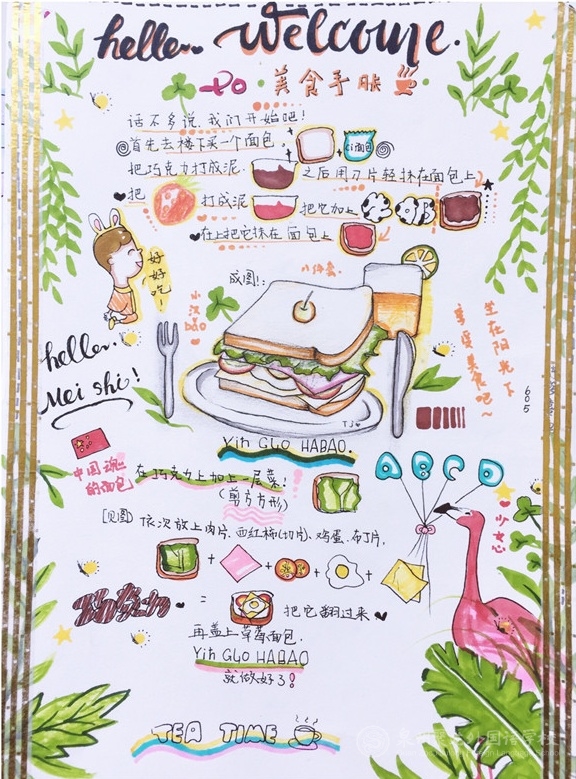 hello.. Welcome.
美食手账
话不多说,我们开始吧!
首先去楼下买一个面包
面包
把巧克力打成泥 之后用刀片轻抹在面包上
把 打成泥 把它加上牛奶
在上把它抹在面包上
好好吃!
成图!:
小汉bao
坐在阳光下
享受美食吧~
hello..
Mei shi!
605
TJ
Yin GUO HABAO.
中国魂的面包
在巧克力上加上一层菜!
(剪方方形)
ABCD
少女心
[见图] 依次放上肉片、西红柿(切片)、鸡蛋、布丁片,
+ + + +
= 把它翻过来
再盖上草莓面包.
Yin GUO HABAO
就做好了!
TEA TIME
外国语学校